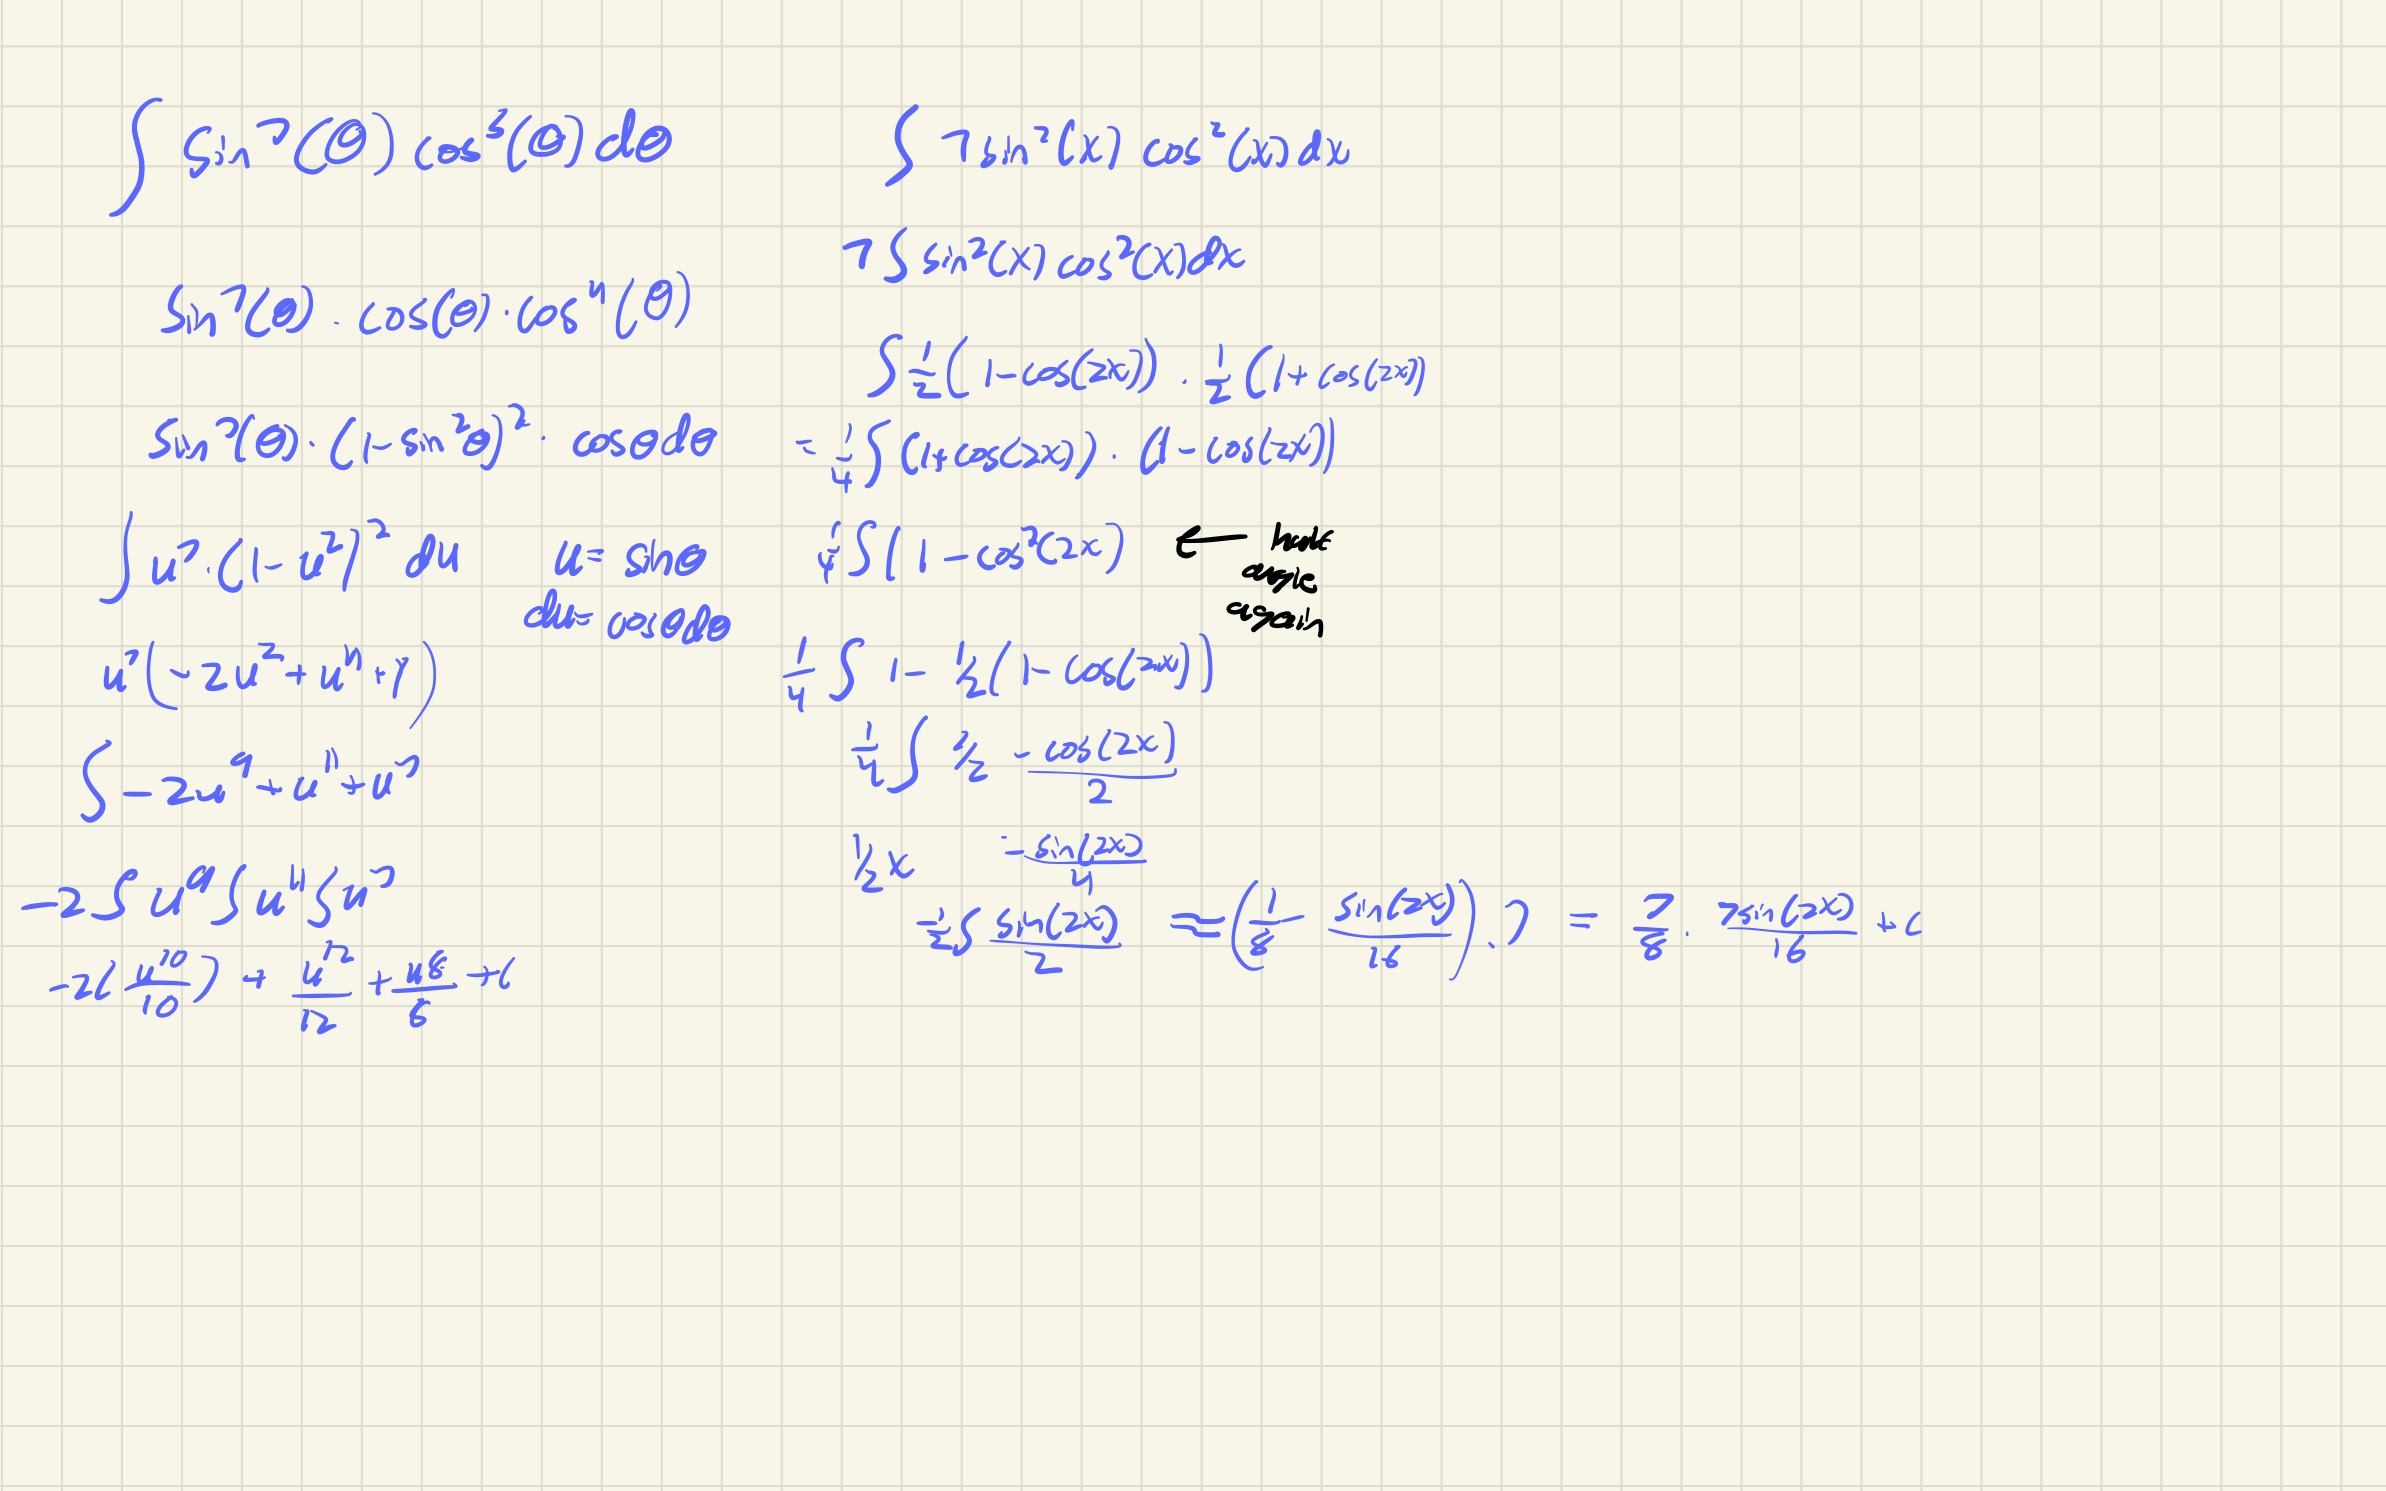 ∫ sin⁷(θ) cos⁵(θ) dθ
sin⁷(θ) · cos(θ) · cos⁴(θ)
sin⁷(θ) · (1-sin²θ)² · cosθdθ
∫ u⁷ · (1-u²)² du   u = sinθ
du = cosθdθ
u⁷(-2u² + u⁴ + 1)
∫ -2u⁹ + u¹¹ + u⁷
-2∫u⁹ ∫u¹¹ ∫u⁷
-2(u¹⁰/10) + u¹²/12 + u⁸/8 + C
∫ 7 sin²(x) cos²(x) dx
7∫ sin²(x) cos²(x)dx
∫ 1/2 (1-cos(2x)) · 1/2 (1+cos(2x))
= 1/4 ∫ (1+cos(2x)) · (1-cos(2x))
1/4 ∫ (1-cos²(2x)) ← half
angle
again
1/4 ∫ 1 - 1/2 (1-cos(2x))
1/4 ∫ 1/2 - cos(2x)/2
1/2 x   - sin(2x)/4
1/2 ∫ sin(2x)/2 = (1/8 - sin(2x)/16) · 7 = 7/8 · 7sin(2x)/16 + C